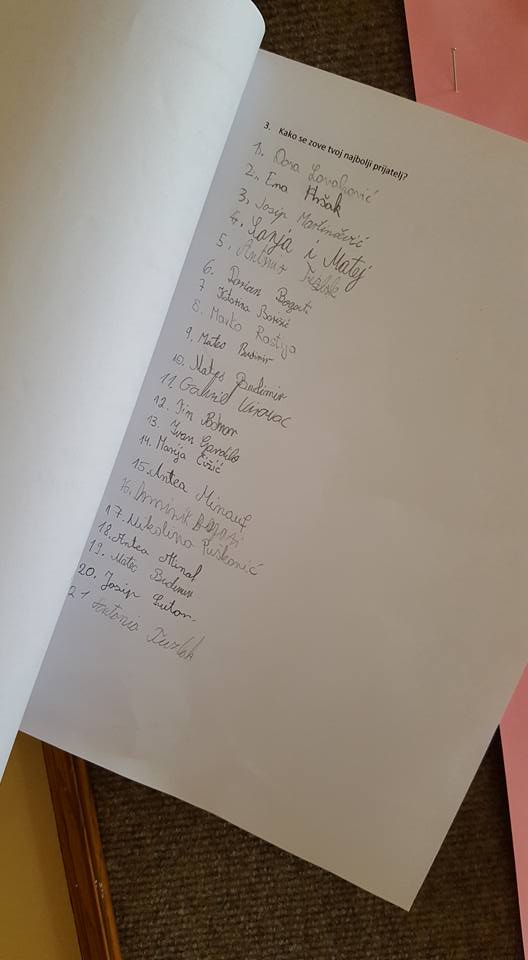 3. Kako se zove tvoj najbolji prijatelj?
1. Dora Lovaković
2. Ema Hršak
3. Josip Martinčević
4. Lanja i Matej
5. Antonio
6. Dorian Bogati
7 Katarina Barišić
8. Marko Rastija
9. Mateo Budimir
10. Mateo Budimir
11. Gabriel Kirovac
12. Jin
13. Ivan
14. Marija Čižić
15. Antea Minauf
16. Dominik
17. Nikolina Puškarić
18. Antea
19. Mateo Budimir
20. Josip
21 Antonio